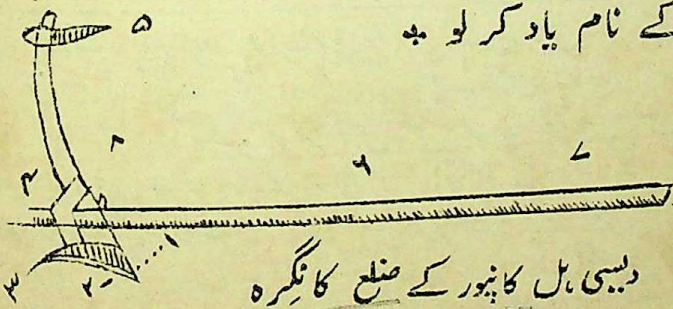 کے نام یاد کر لو ۔
۵
۸
۶
۷
۴
۱
۲
۳
دیسی ہل کانپور کے ضلع کا نگرہ